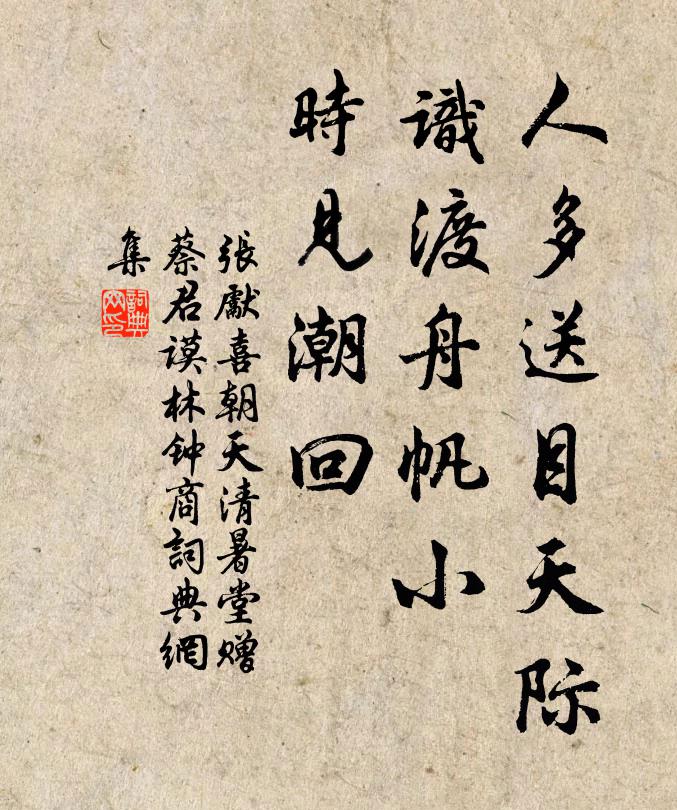 人多送目天际
識渡舟帆小
時見潮回
張獻喜朝天清暑堂赠
蔡君谟林钟商詞典網
集
詞典网印